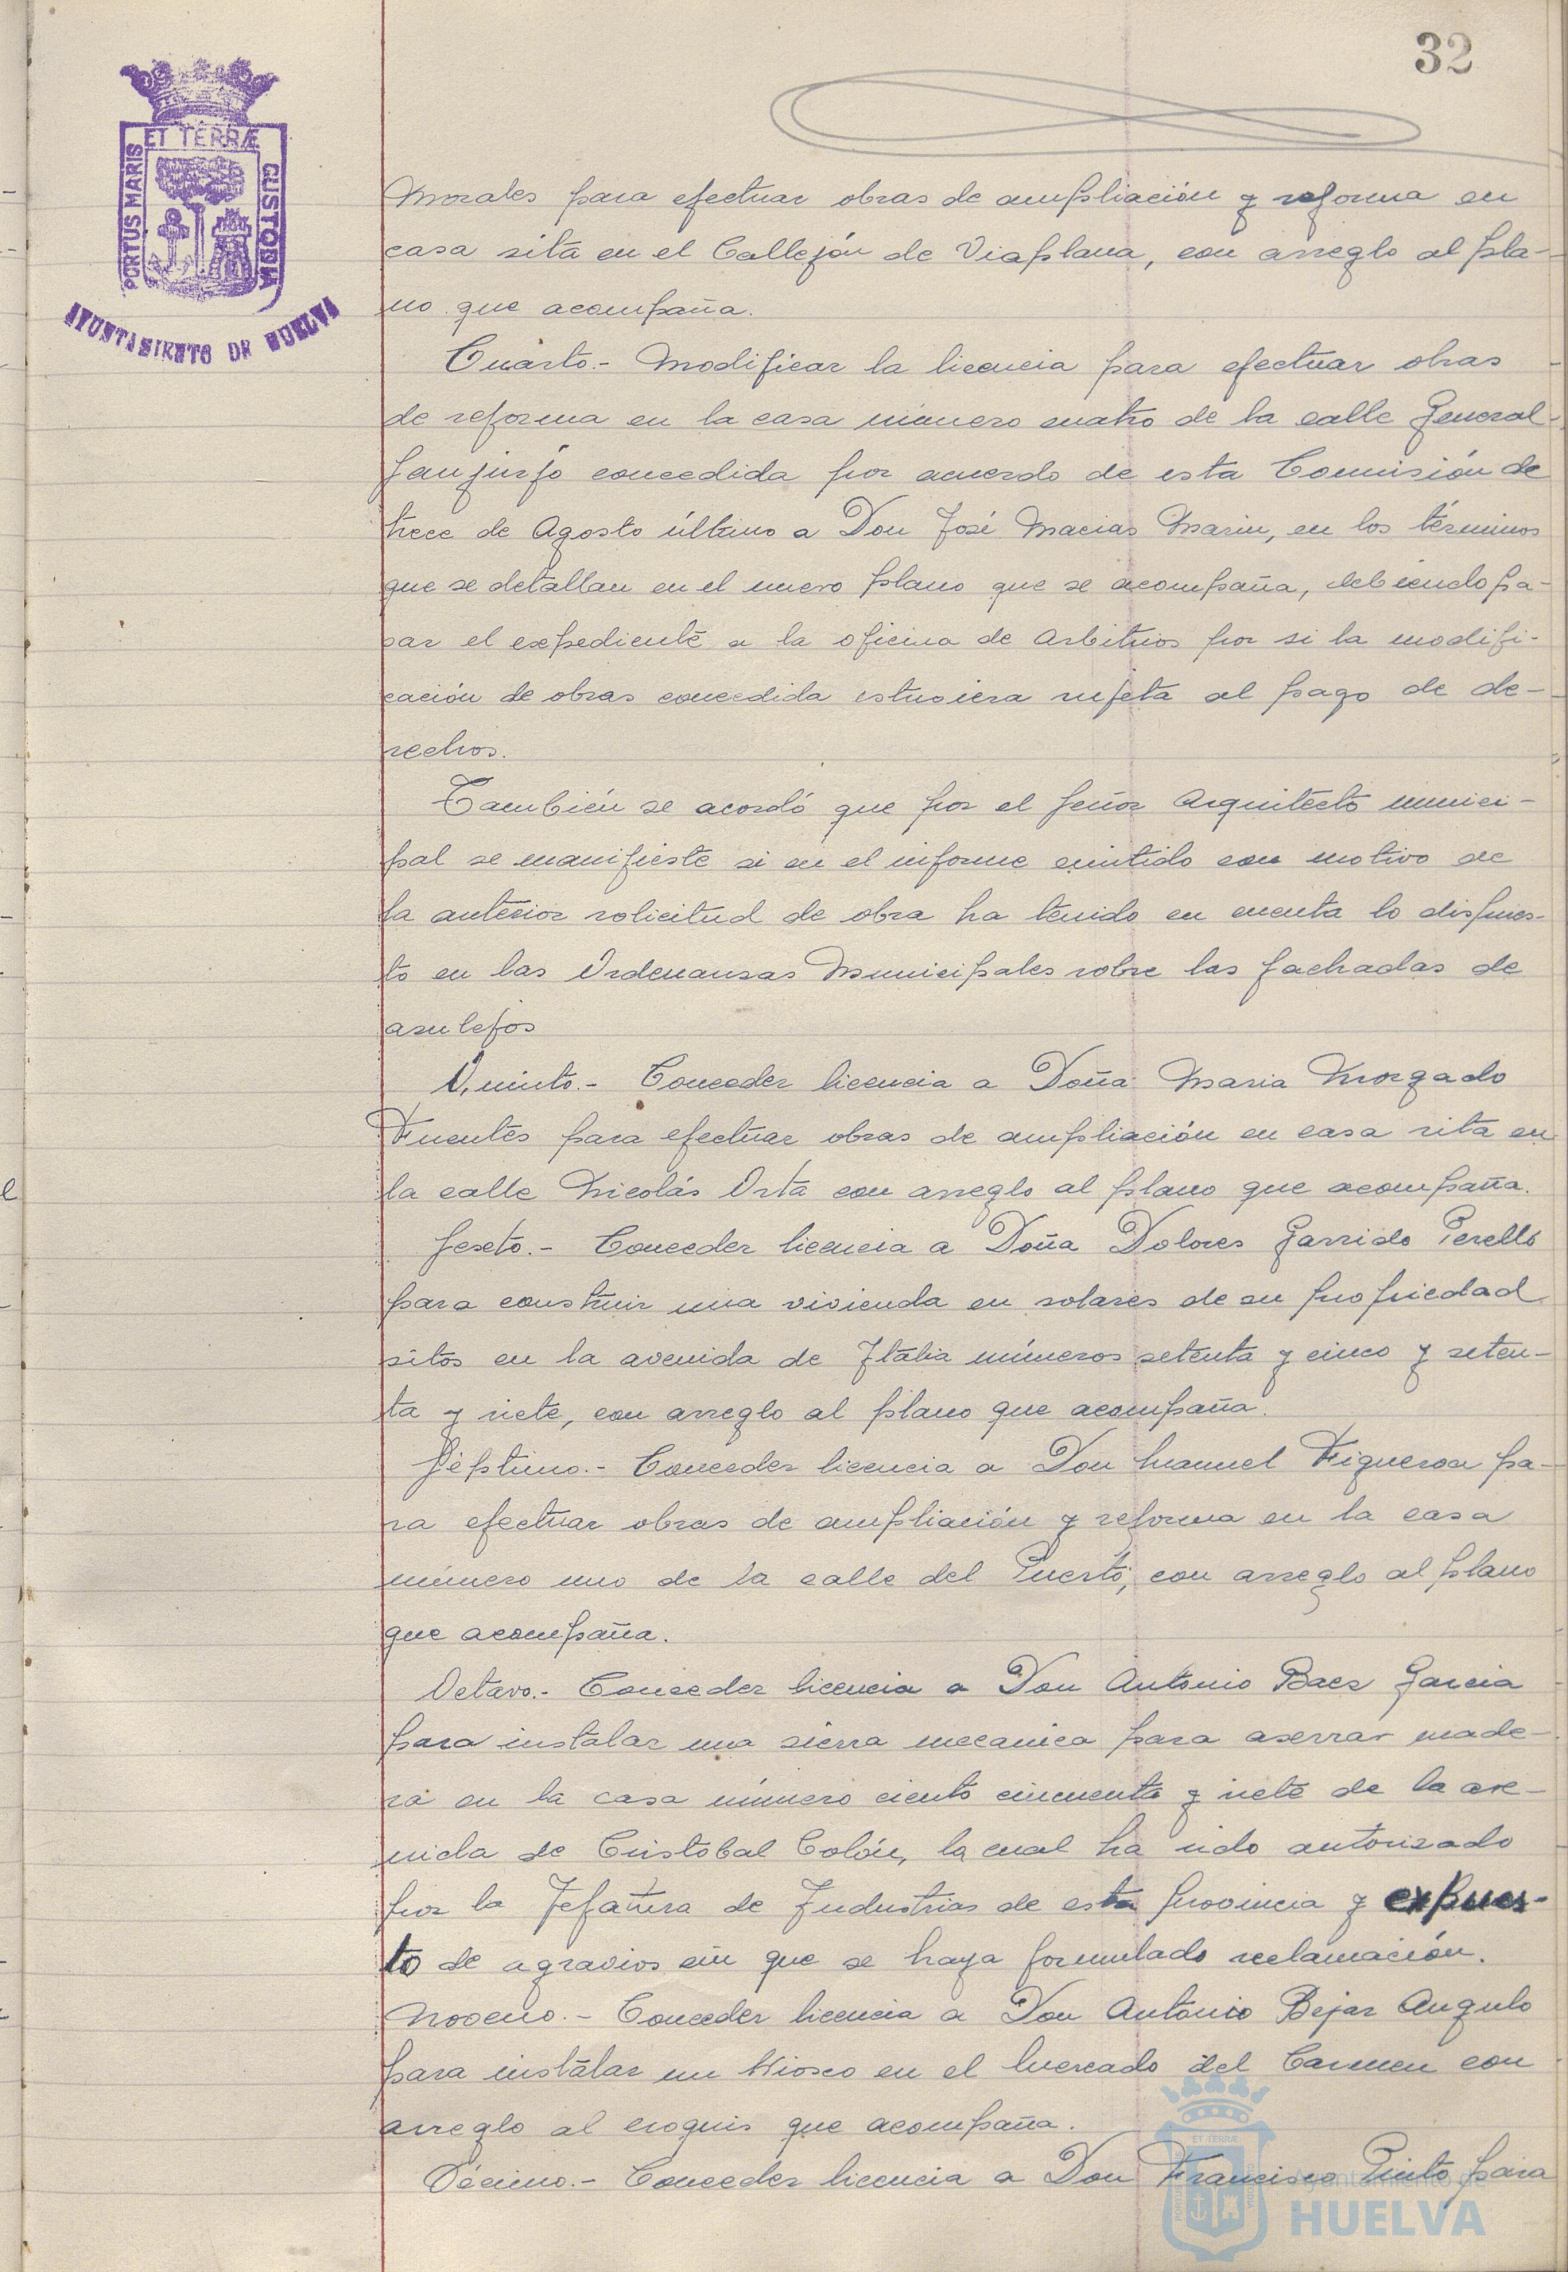 32
PORTUS MARIS ET TERRÆ CUSTODIA
AYUNTAMIENTO DE HUELVA
Morales para efectuar obras de ampliación y reforma en
casa sita en el Callejón de Viaplana, con arreglo al pla-
no que acompaña.
Cuarto.- Modificar la licencia para efectuar obras
de reforma en la casa número cuatro de la calle General
Sanjurjo concedida por acuerdo de esta Comisión de
trece de Agosto último a Don José Macias Marin, en los términos
que se detallan en el nuevo plano que se acompaña, debiendo pa-
sar el expediente a la oficina de Arbitrios por si la modifi-
cación de obras concedida estuviera sujeta al pago de de-
rechos.
También se acordó que por el Señor Arquitecto munici-
pal se manifieste si en el informe emitido con motivo de
la anterior solicitud de obra ha tenido en cuenta lo dispues-
to en las Ordenansas Municipales sobre las fachadas de
asulejos
Quinto.- Conceder licencia a Doña Maria Morgado
Fuentes para efectuar obras de ampliación en casa sita en
la calle Nicolás Orta con arreglo al plano que acompaña.
Sexto.- Conceder licencia a Doña Dolores Garrido Perelló
para construir una vivienda en solares de su propiedad
sitos en la avenida de Italia números setenta y cinco y seten-
ta y siete, con arreglo al plano que acompaña.
Séptimo.- Conceder licencia a Don Manuel Figueroa pa-
ra efectuar obras de ampliación y reforma en la casa
número uno de la calle del Puerto, con arreglo al plano
que acompaña.
Octavo.- Conceder licencia a Don Antonio Baez Garcia
para instalar una sierra mecanica para aserrar made-
ra en la casa número ciento cincuenta y siete de la ave-
nida de Cristobal Colón, la cual ha sido autorizado
por la Jefatura de Industrias de esta provincia y expues-
to de agravios sin que se haya formulado reclamación.
Noveno.- Conceder licencia a Don Antonio Bejar Angulo
para instalar un Kiosco en el Mercado del Carmen con
arreglo al croquis que acompaña.
Décimo.- Conceder licencia a Don Francisco Pinto para
Ayuntamiento de
HUELVA